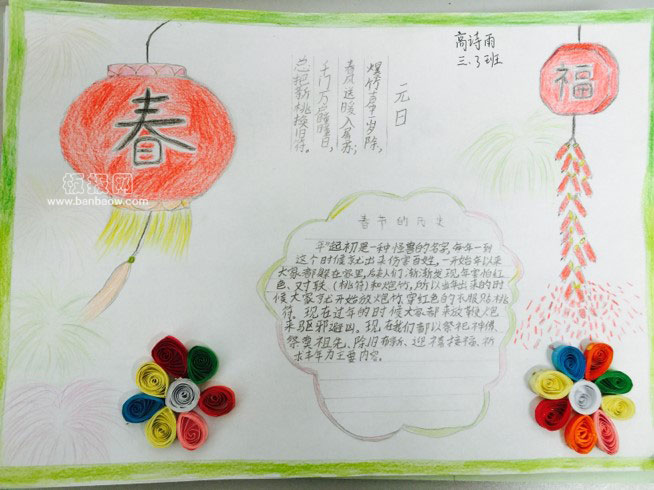 高诗雨
三.3班
元日
爆竹声中一岁除,
春风送暖入屠苏;
千门万户曈曈日,
总把新桃换旧符。
春
福
板报网
www.benbeow.com
春节的历史
年起初是一种怪兽的名字,每年一到
这个时候就出来伤害百姓。一开始年以来
大家都躲在家里,后来人们渐渐发现,年害怕红
色、对联、(桃符)和炮竹,所以当年出来的时
候大家就开始放炮竹穿红色的衣服贴桃
符。现在过年的时候大家都来放鞭炮
来驱邪避凶。现在我们都以祭祀神佛、
祭奠祖先、除旧布新、迎禧接福、祈
求丰年为主要内容。